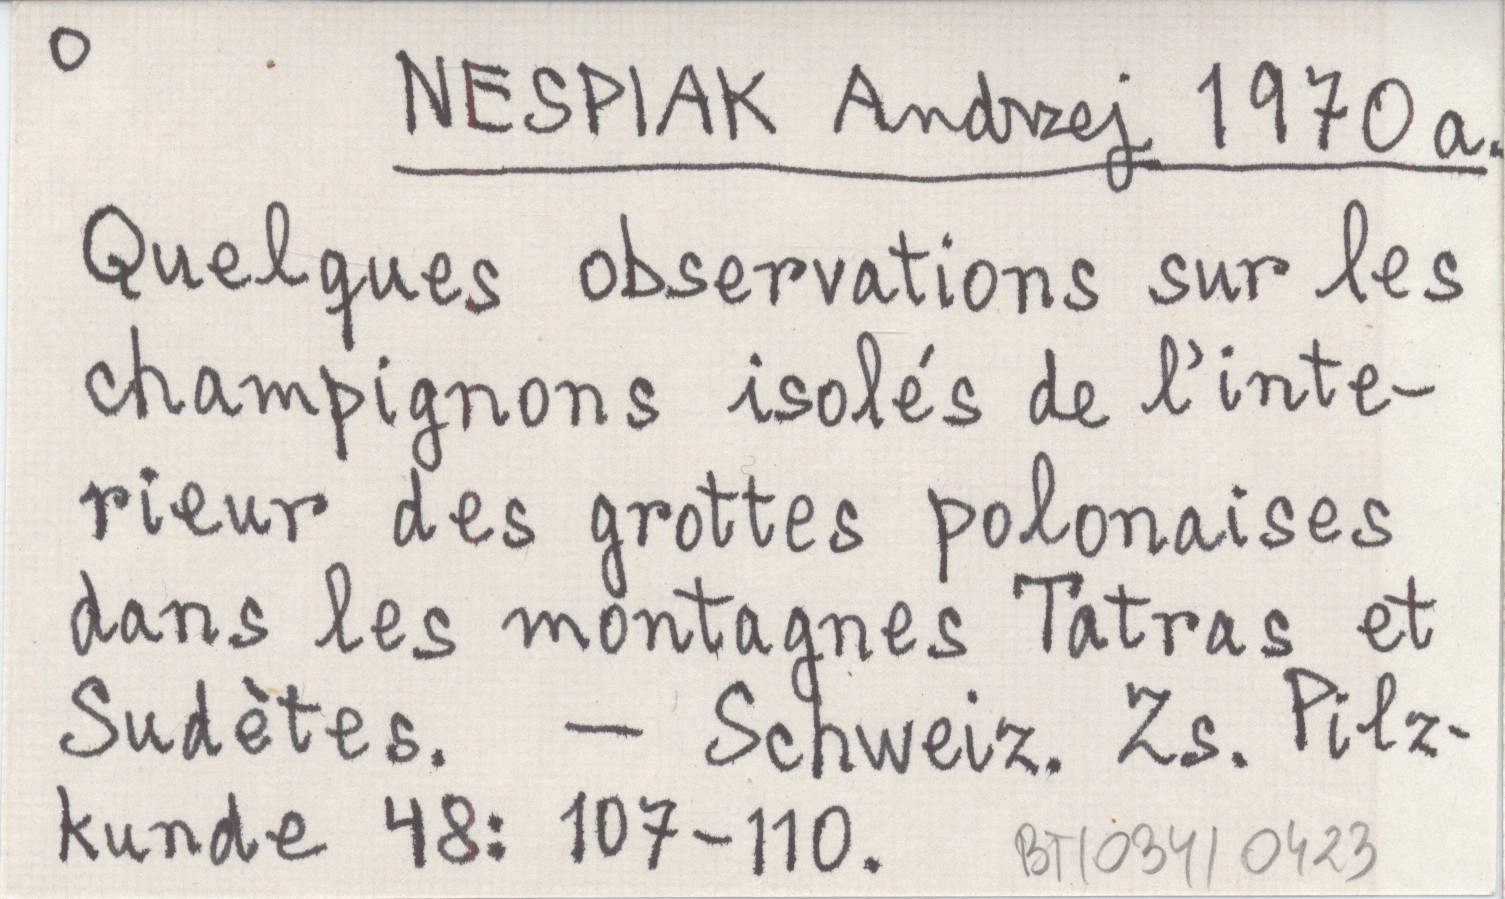 O
NESPIAK Andrzej 1970a.
Quelques observations sur les
champignons isolés de l'inte-
rieur des grottes polonaises
dans les montagnes Tatras et
Sudètes. — Schweiz. Zs. Pilz-
kunde 48: 107-110.
BT/034/0423